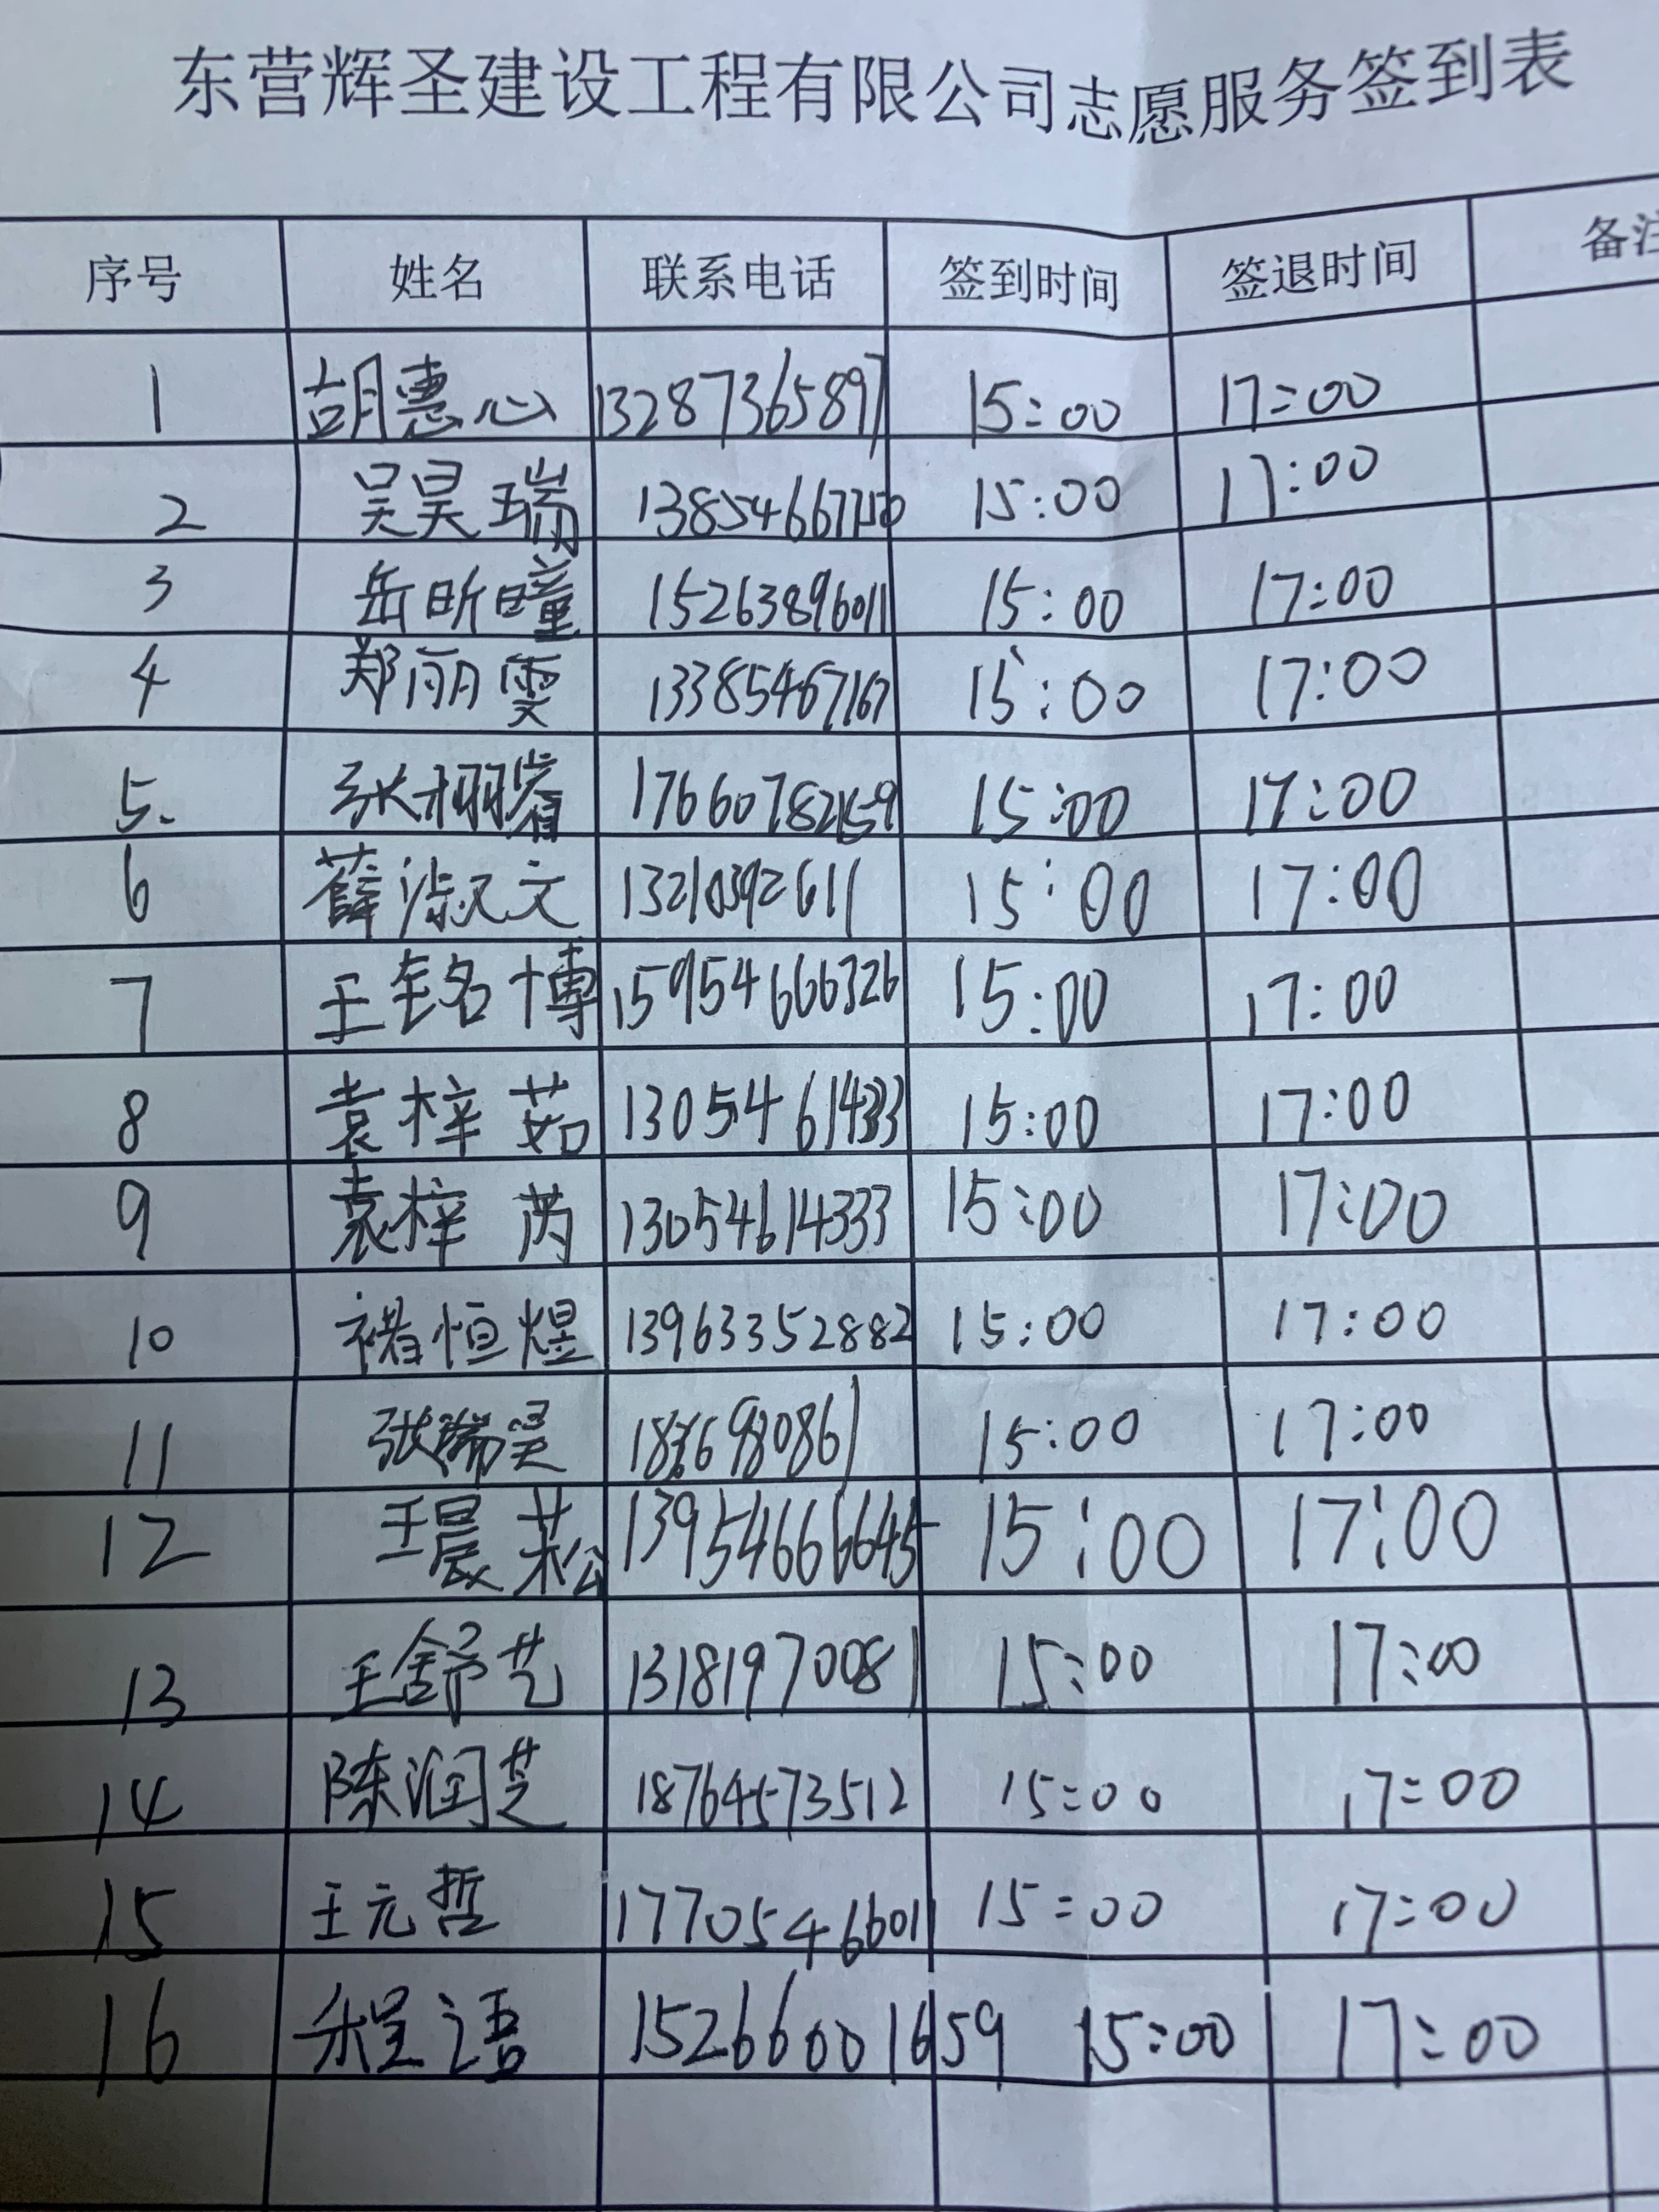 东营辉圣建设工程有限公司志愿服务签到表
序号 姓名 联系电话 签到时间 签退时间 备注
1 胡惠心 13287365897 15:00 17:00
2 吴昊瑞 13854667750 15:00 17:00
3 岳昕曈 15263896011 15:00 17:00
4 郑丽雯 13385467167 15:00 17:00
5. 张栩 17660782159 15:00 17:00
6 薛淑文 13210392611 15:00 17:00
7 王铭博 15954666326 15:00 17:00
8 袁梓茹 13054614333 15:00 17:00
9 袁梓芮 13054614333 15:00 17:00
10 褚恒煜 13963352882 15:00 17:00
11 张瑞昊 15:00 17:00
12 王晨菘 13954666645 15:00 17:00
13 王舒艺 13181970081 15:00 17:00
14 陈润芝 18764573512 15:00 17:00
15 王元哲 17705466011 15:00 17:00
16 程语 15266001659 15:00 17:00